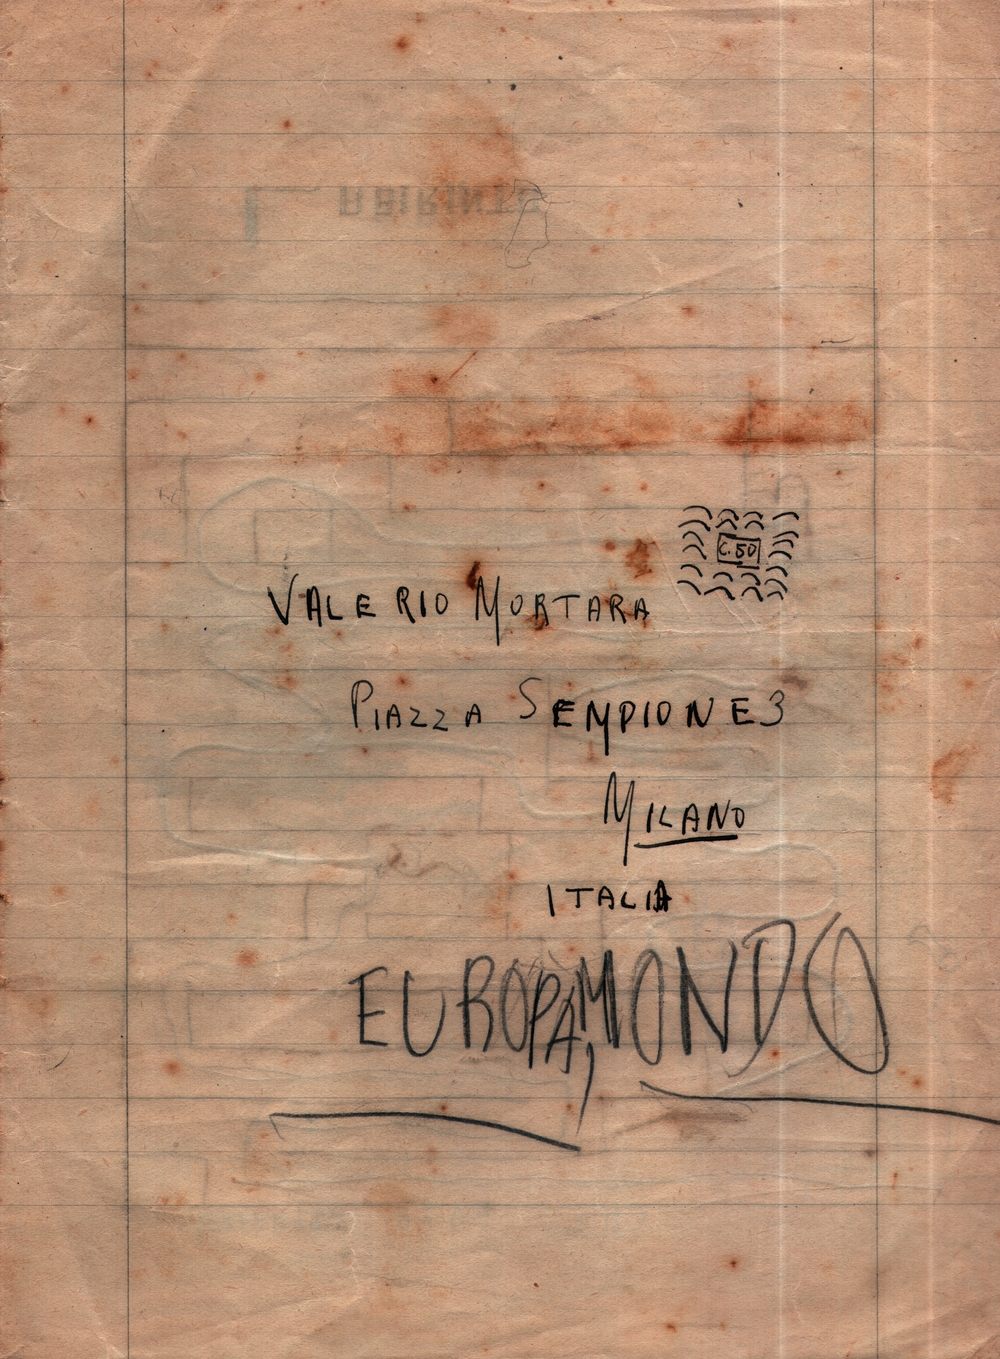 C. 50
VALERIO MORTARA
PIAZZA SEMPIONE 3
MILANO
ITALIA
EUROPA, MONDO